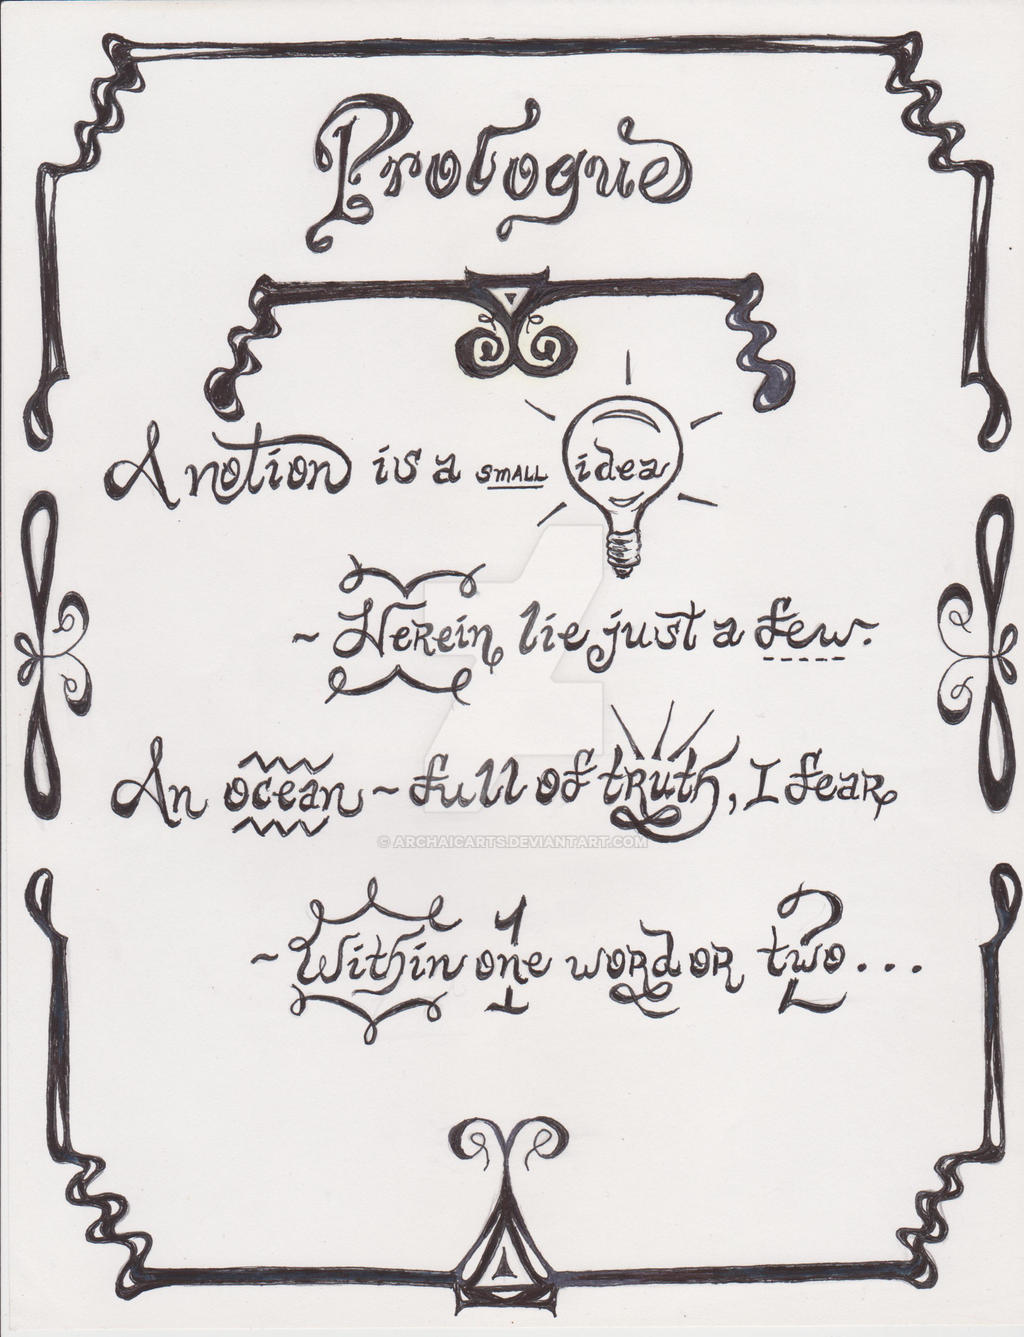 Prologue
A notion is a small idea
~ Herein lie just a few.
An ocean ~ full of truth, I fear
~ Within one word or two...
© ARCHAICARTS.DEVIANTART.COM